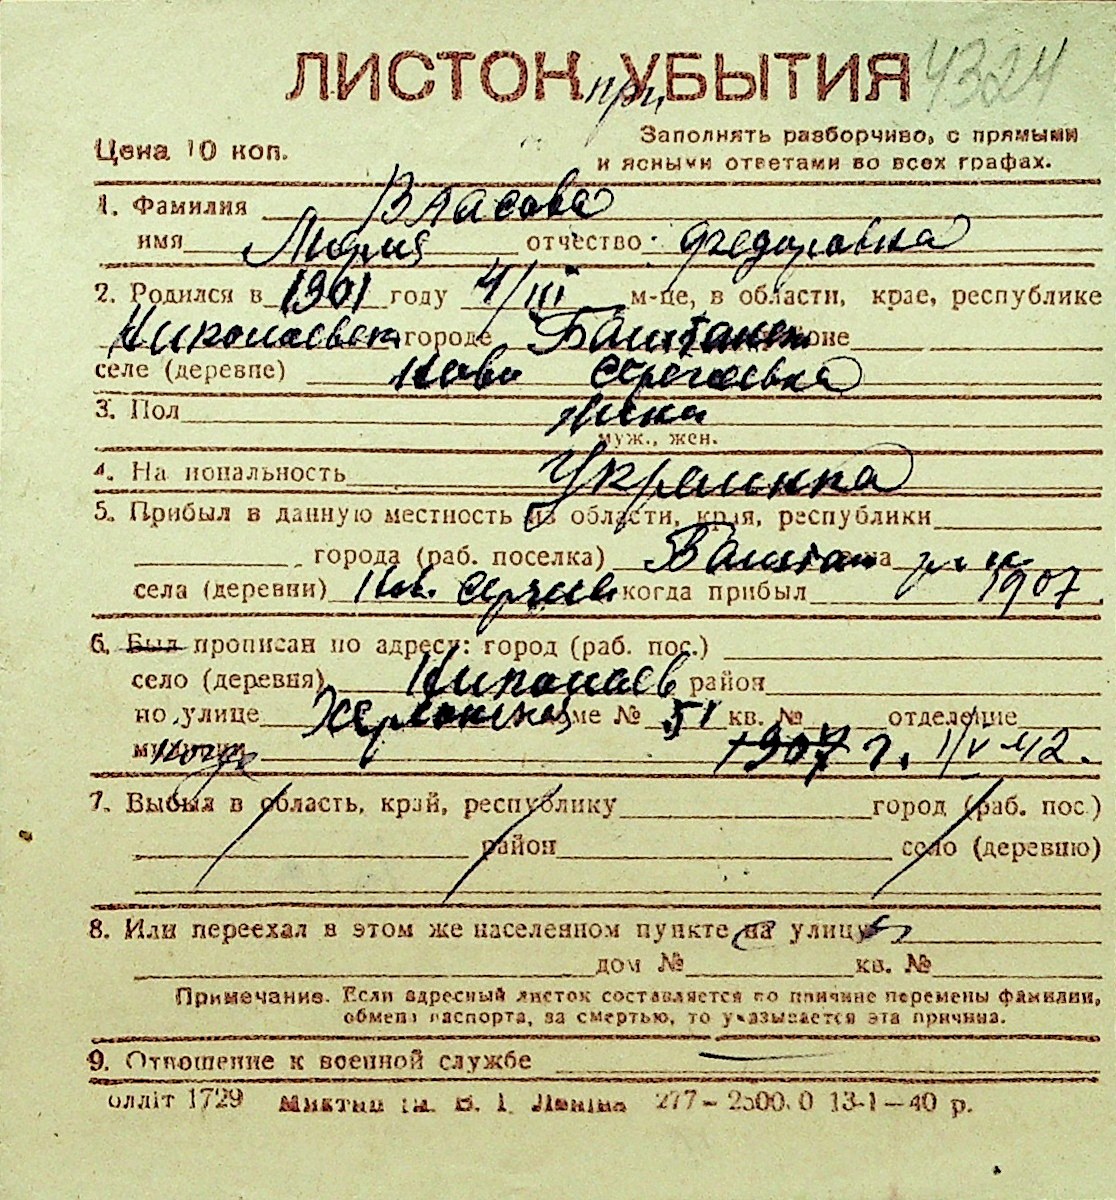 ЛИСТОК при УБЫТИЯ 4324
Цена 10 коп.
Заполнять разборчиво, с прямыми
и ясными ответами во всех графах.
1. Фамилия Власова
имя Мария отчество Федоровна
2. Родился в 1901 году 4/III м-це, в области, крае, республике
Николаевск городе Баштанск районе
селе (деревне) Ново Сергеевка
3. Пол женск
муж., жен.
4. Национальность Украинка
5. Прибыл в данную местность из области, края, республики
города (раб. поселка) Баштан р-на
села (деревни) Нов. Сергеев когда прибыл 1907
6. Был прописан по адресу: город (раб. пос.)
село (деревня) Николаев район
по улице Херсонская доме № 51 кв. № отделение
милиции 1907 г. 1/V 42.
7. Выбыл в область, край, республику город (раб. пос.)
район село (деревню)
8. Или переехал в этом же населенном пункте на улицу
дом № кв. №
Примечание. Если адресный листок составляется по причине перемены фамилии,
обмена паспорта, за смертью, то указывается эта причина.
9. Отношение к военной службе
оллiт 1729 В. І. Ленiна 277—2500.0 13-1—40 р.